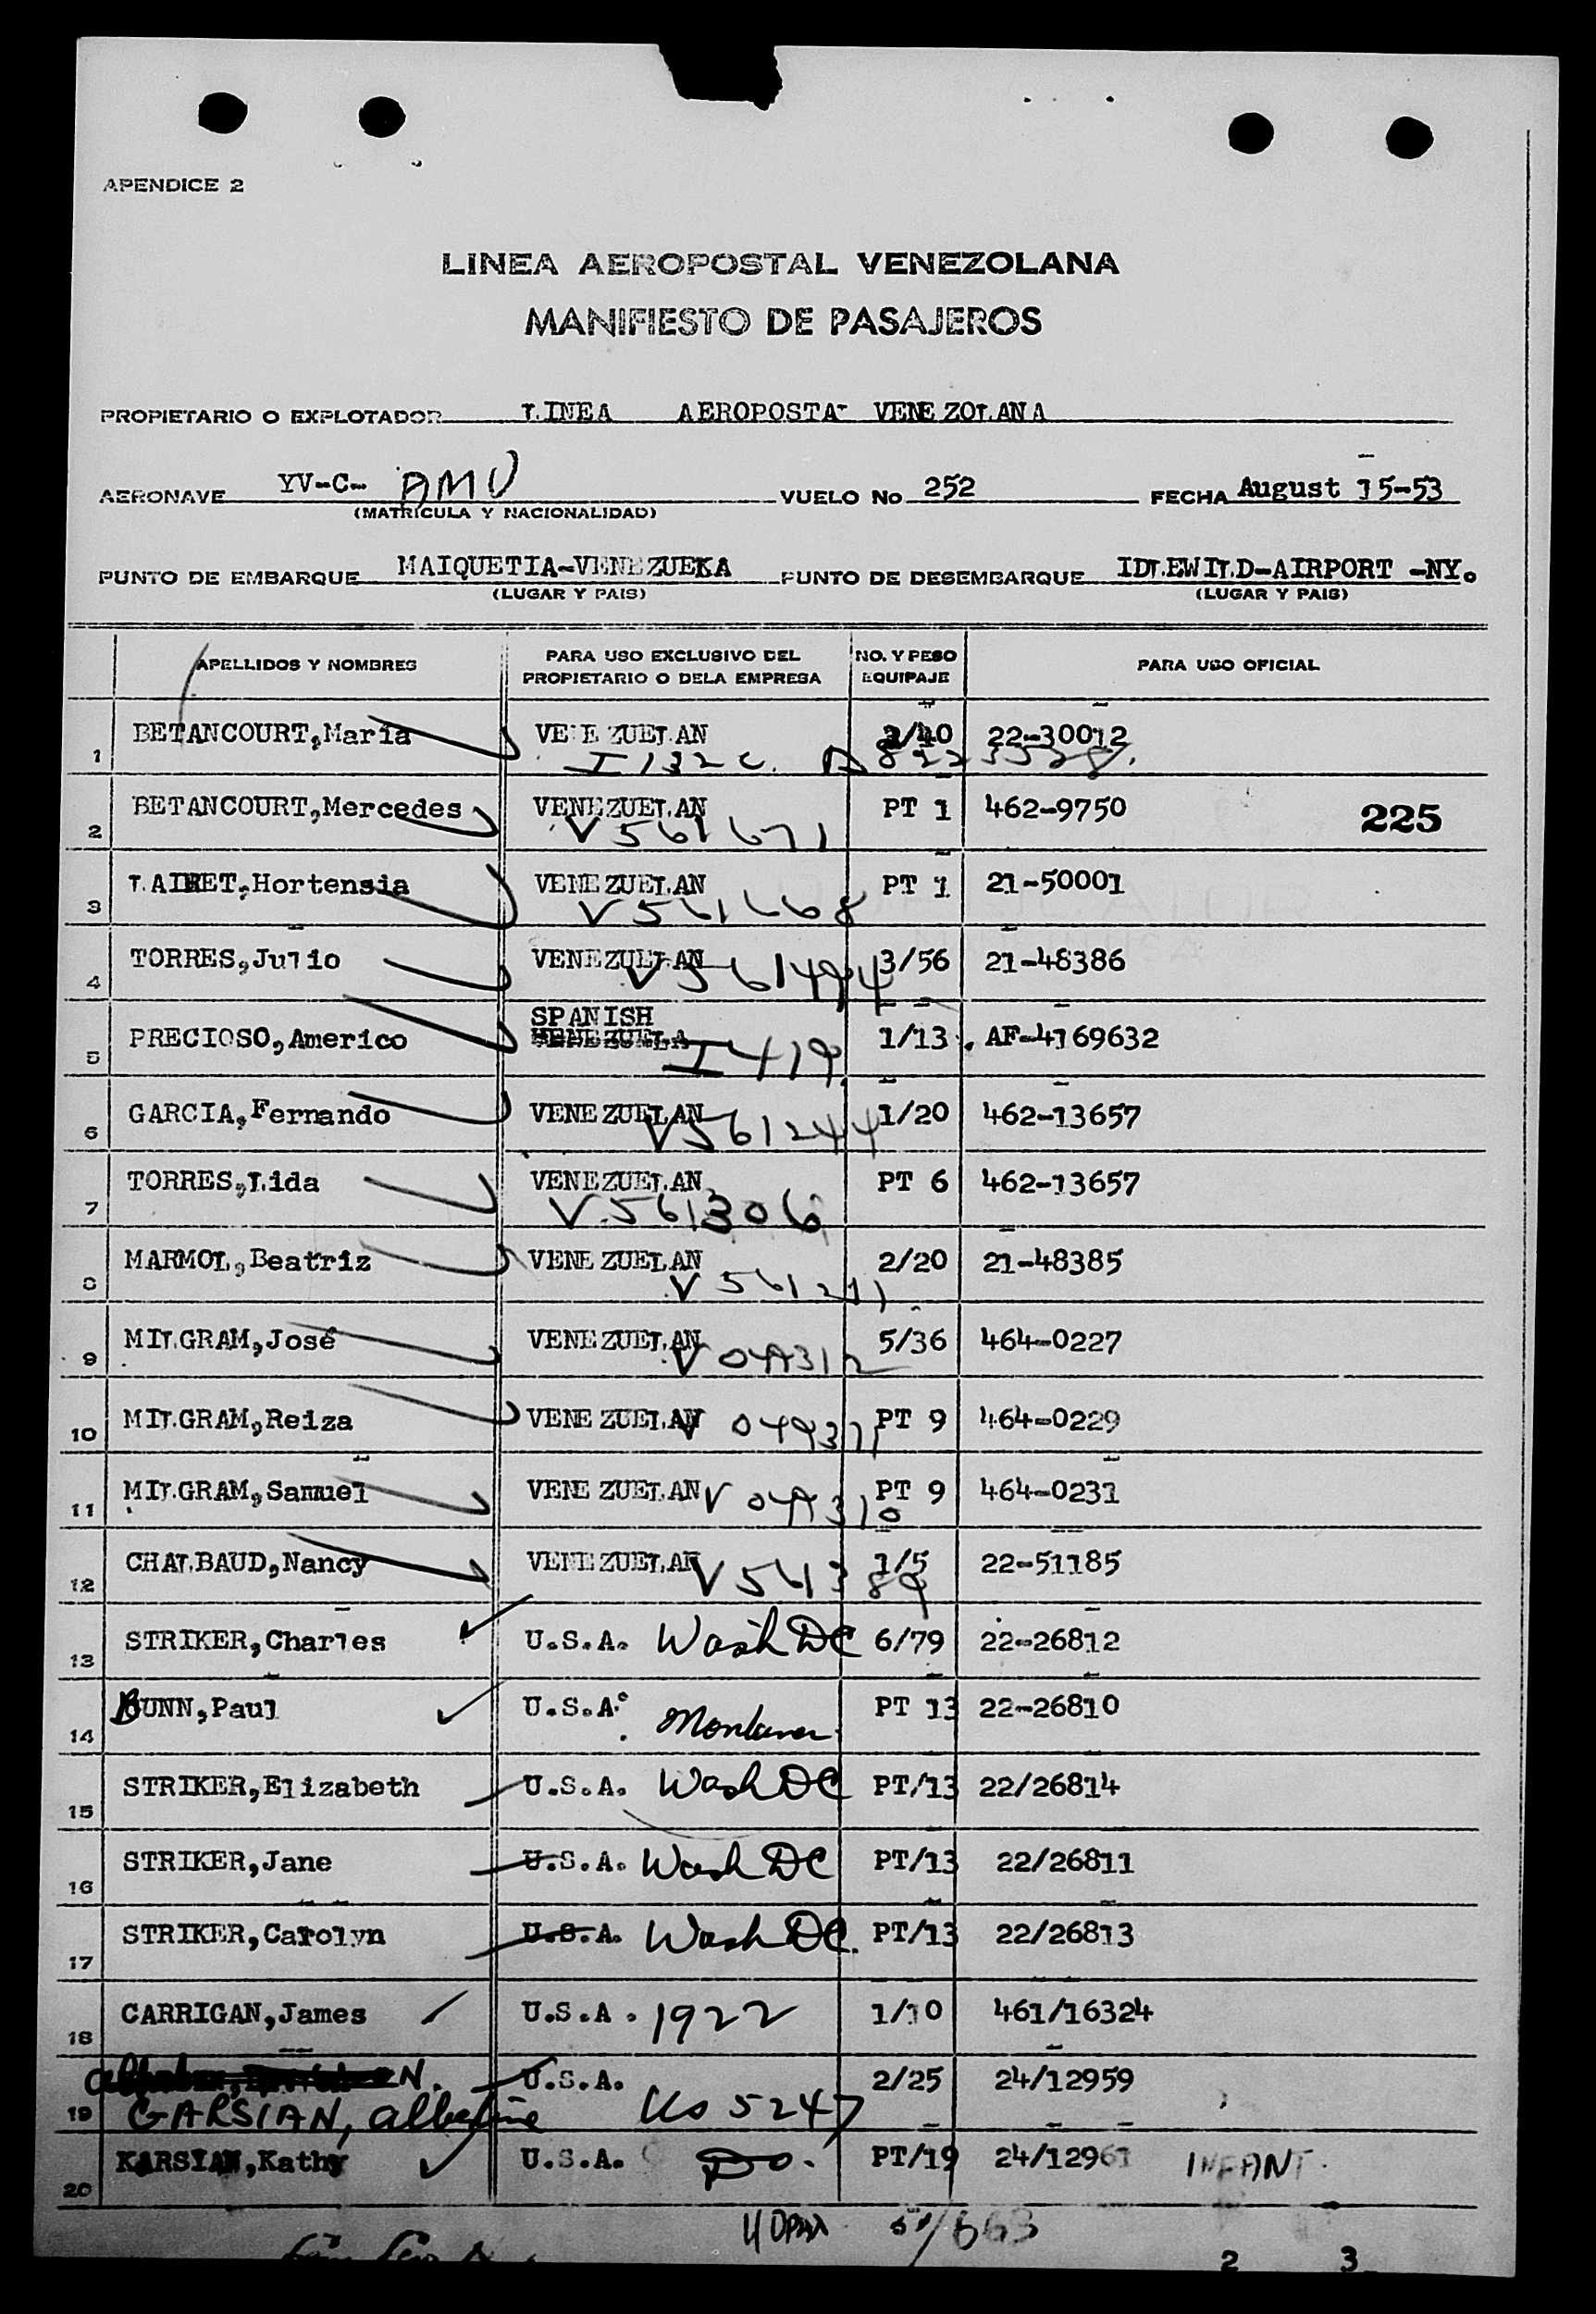 APENDICE 2
LINEA AEROPOSTAL VENEZOLANA
MANIFIESTO DE PASAJEROS
PROPIETARIO O EXPLOTADOR LINEA AEROPOSTA VENEZOLANA
AERONAVE YV-C- AMU VUELO No 252 FECHA August 15-53
(MATRICULA Y NACIONALIDAD)
PUNTO DE EMBARQUE MAIQUETIA-VENEZUEKA PUNTO DE DESEMBARQUE IDLEWILD-AIRPORT -NY.
(LUGAR Y PAIS) (LUGAR Y PAIS)
APELLIDOS Y NOMBRES PARA USO EXCLUSIVO DEL PROPIETARIO O DELA EMPRESA NO. Y PESO EQUIPAJE PARA USO OFICIAL
1 BETANCOURT,Maria VENEZUELAN 2/40 22-30012
I 132 C. A8223528.
2 BETANCOURT,Mercedes VENEZUELAN PT 1 462-9750 225
V 561671
3 LAIRET,Hortensia VENEZUELAN PT 1 21-50001
V 561668
4 TORRES,Julio VENEZUELAN 3/56 21-48386
V 561494
SPANISH
5 PRECIOSO,Americo VENEZUELA 1/13 AF-4169632
I 419
6 GARCIA,Fernando VENEZUELAN 1/20 462-13657
V 561244
7 TORRES,Lida VENEZUELAN PT 6 462-13657
V.561306
8 MARMOL,Beatriz VENEZUELAN 2/20 21-48385
V 561211
9 MILGRAM,José VENEZUELAN 5/36 464-0227
V 049312
10 MILGRAM,Reiza VENEZUELAN V 049311 PT 9 464-0229
11 MILGRAM,Samuel VENEZUELAN V 049310 PT 9 464-0231
12 CHALBAUD,Nancy VENEZUELAN 1/5 22-51185
V 561389
13 STRIKER,Charles U.S.A. Wash DC 6/79 22-26812
14 BUNN,Paul U.S.A. Montana PT 13 22-26810
15 STRIKER,Elizabeth U.S.A. Wash DC PT/13 22/26814
16 STRIKER,Jane U.S.A. Wash DC PT/13 22/26811
17 STRIKER,Carolyn U.S.A. Wash DC. PT/13 22/26813
18 CARRIGAN,James U.S.A. 1922 1/10 461/16324
N. U.S.A. 2/25 24/12959
19 GARSIAN, Albertine US 5247
20 KARSIAN,Kathy U.S.A. Do. PT/19 24/12961 INFANT.
40 PAX 50/663
2 3